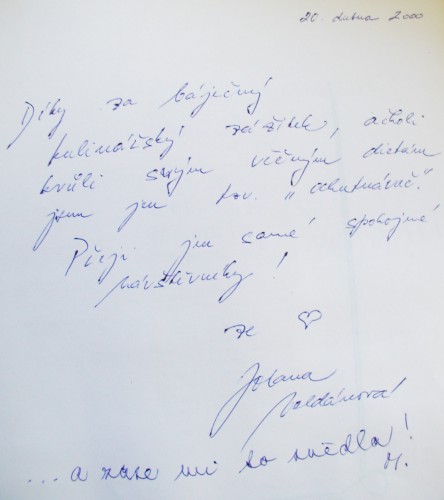 20. dubna 2000
Díky za báječný
kulinářský zážitek, ačkoli
kvůli svým věčným dietám
jsem jen tzv. „ochutnávač."
Přeji jen samé spokojené
návštěvníky!
ze ♡
Jolana
Voldánová
... a zase mi to snědla!
M.